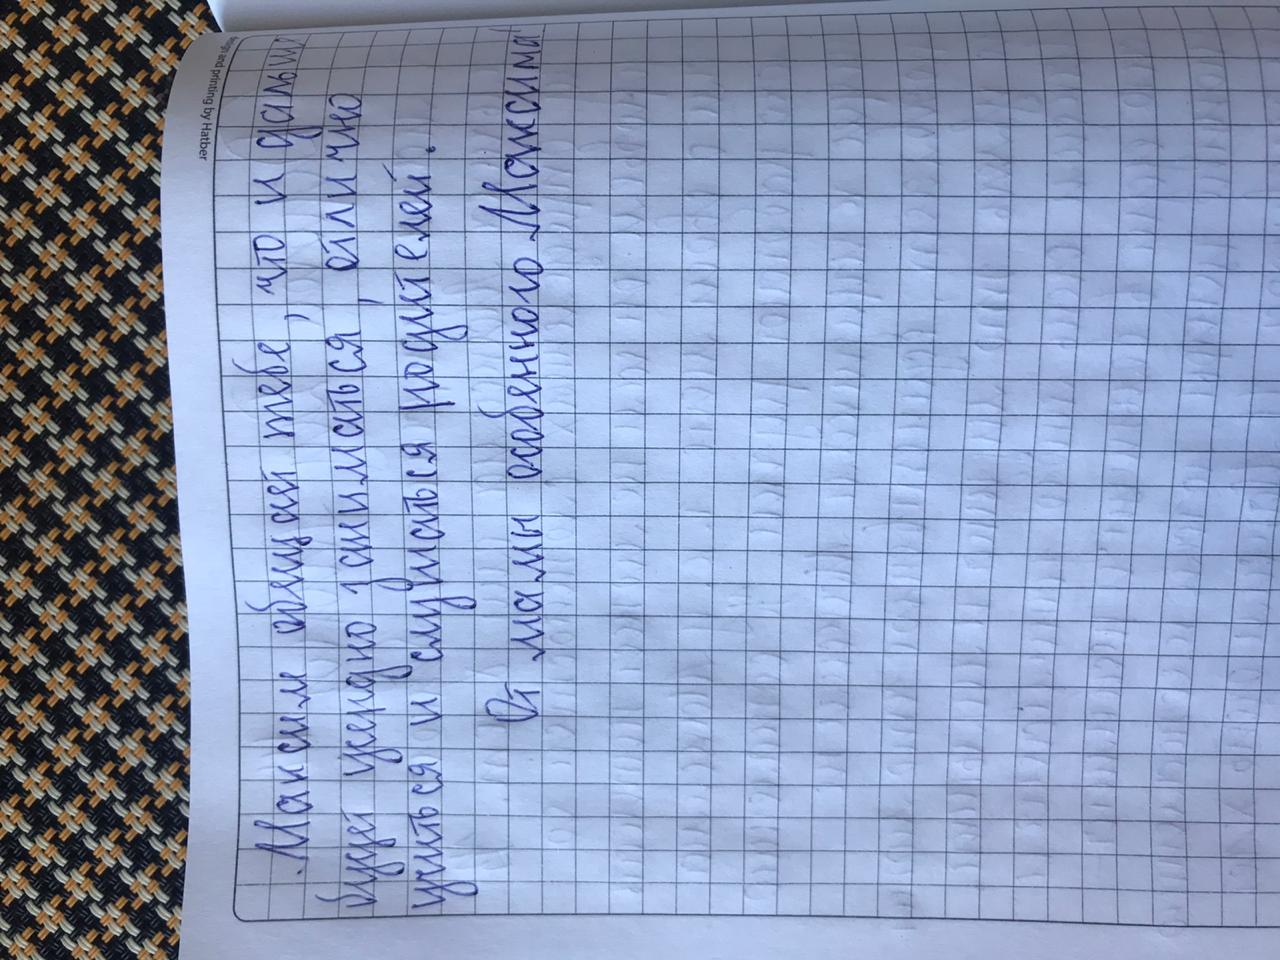 Design and printing by Hatber
Максим обещает тебе, что и дальше
будет усердно заниматься, отлично
учиться и слушаться родителей.
От мамы особенного Максима